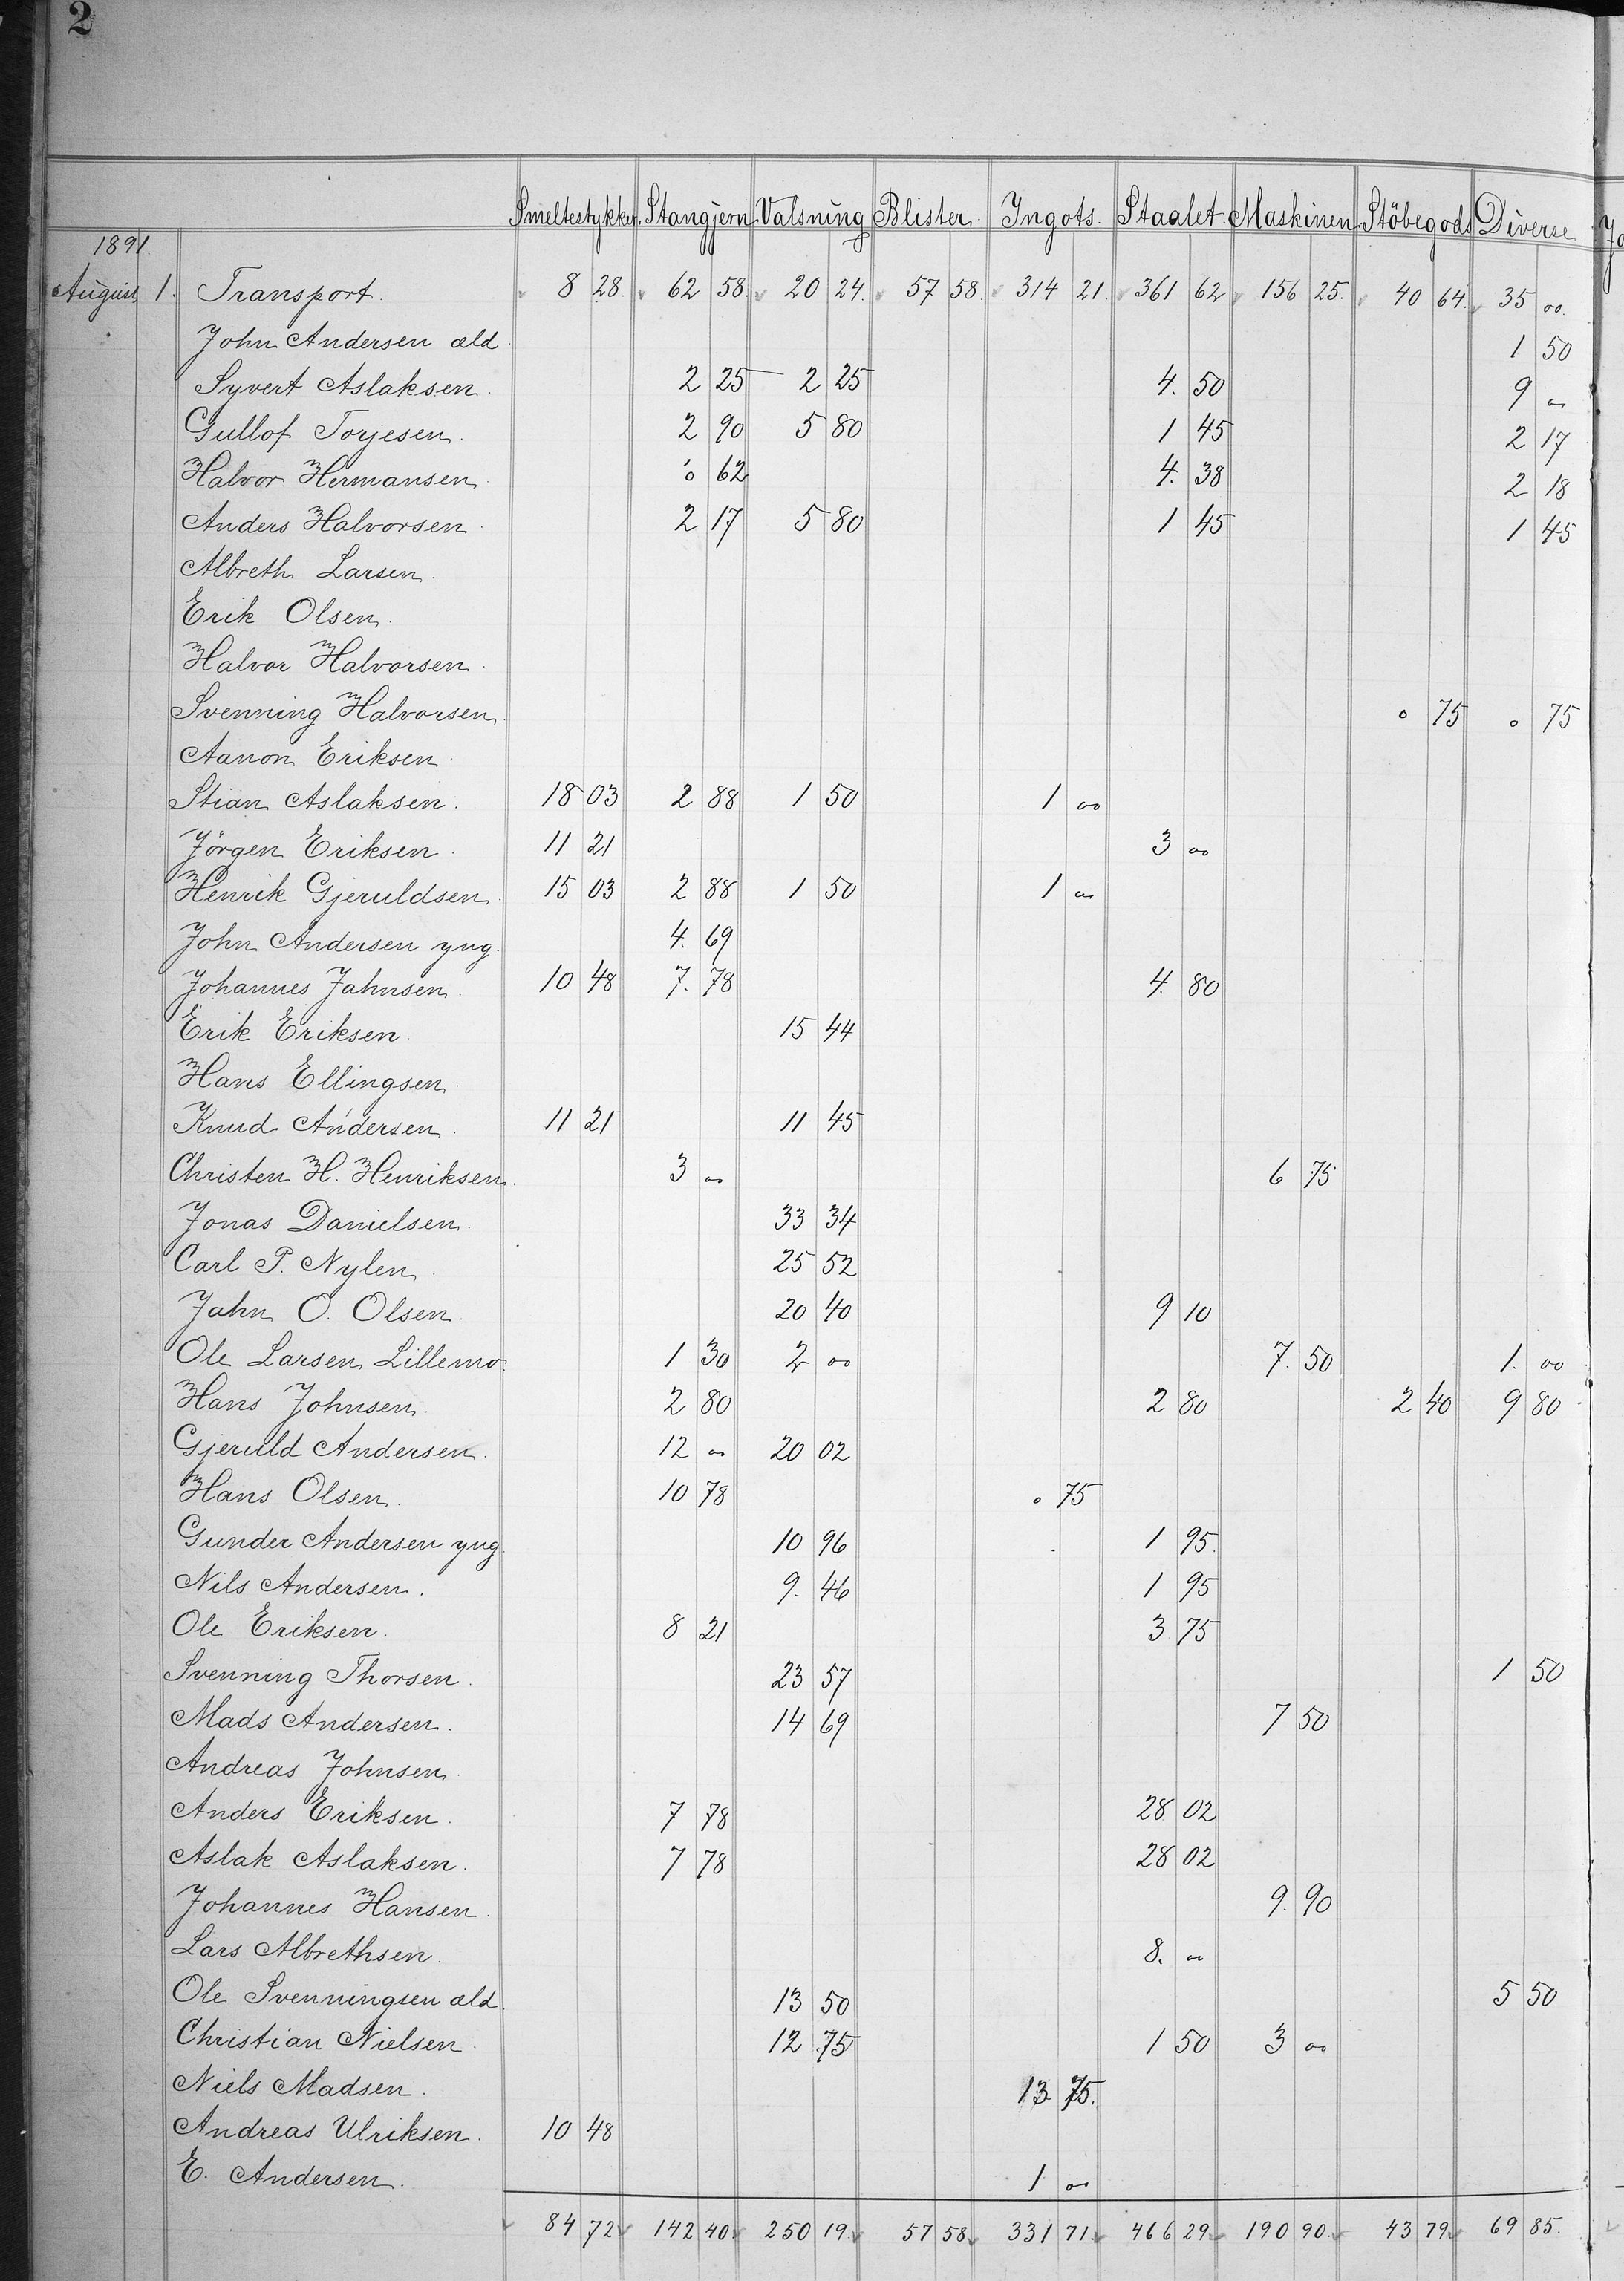 2
Smeltestykker Stangjern Valsning Blister. Ingots. Staalet Maskinen Stöbegods Diverse
1891.
August 1. Transport. 8 28. 62 58. 20 24. 57 58. 314 21. 361 62 156 25. 40 64. 35 00.
John Andersen æld. 1 50
Syvert Aslaksen. 2 25 2 25 4. 50 9 00
Gullof Torjesen. 2 90 5 80 1 45 2 17
Halvor Hermansen. 0 62 4. 38 2 18
Anders Halvorsen. 2 17 5 80 1 45 1 45
Albreth Larsen.
Erik Olsen.
Halvor Halvorsen.
Svenning Halvorsen. 0 75 0 75
Aanon Eriksen.
Stian Aslaksen. 18 03 2 88 1 50 1 00
Jörgen Eriksen. 11 21 3 00
Henrik Gjeruldsen. 15 03 2 88 1 50 1 00
John Andersen yng. 4. 69
Johannes Jahnsen. 10 48 7. 78 4. 80
Erik Eriksen. 15 44
Hans Ellingsen.
Knud Andersen. 11 21 11 45
Christen H. Henriksen. 3 00 6 75
Jonas Danielsen. 33 34
Carl P. Nylen. 25 52
Jahn O. Olsen. 20 40 9 10
Ole Larsen Lillemo. 1 30 2 00 7. 50 1. 00
Hans Johnsen. 2 80 2 80 2 40 9 80
Gjeruld Andersen. 12 00 20 02
Hans Olsen. 10 78 0 75
Gunder Andersen yng. 10 96 1 95.
Nils Andersen. 9. 46 1 95
Ole Eriksen. 8 21 3 75
Svenning Thorsen. 23 57 1 50
Mads Andersen. 14 69 7 50
Andreas Johnsen.
Anders Eriksen. 7 78 28 02
Aslak Aslaksen. 7 78 28 02
Johannes Hansen. 9. 90
Lars Albrethsen. 8. 00
Ole Svenningsen æld. 13 50 5 50
Christian Nielsen. 12 75 1 50 3 00
Niels Madsen. 13 75.
Andreas Ulriksen. 10 48
E. Andersen. 1 00
84 72 142 40. 250 19. 57 58. 331 71. 466 29. 190 90. 43 79. 69 85.